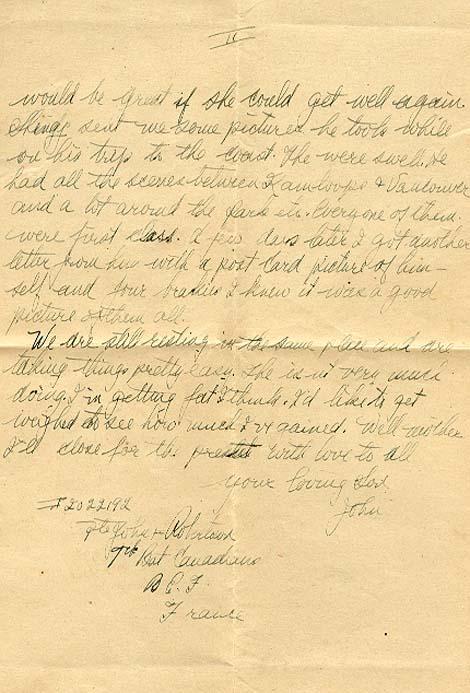 II
would be great if she could get well again.
sent me some pictures he took while
on his trip to the coast. The were swell. He
had all the scenes between Kamloops & Vancouver
and a lot around the park etc. Everyone of them
were first class. A few days later I got another
letter from him with a post card picture of him-
self and four I knew it was a good
picture of them all.
We are still resting in the same place and are
taking things pretty easy. The is n't very much
doing. I'm getting fat I think. I'd like to get
weighed to see how much I've gained. Well mother
I'll close for the present with love to all
your loving Son
John
# 2022192
Pte John Robertson
7th Bat Canadians
B E F
France